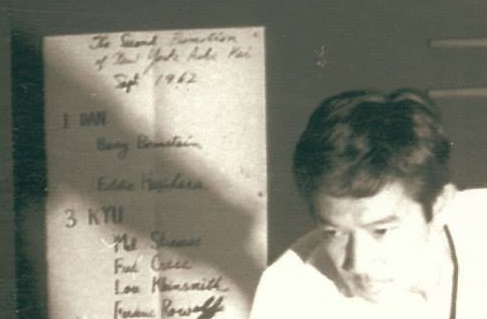 The Second Promotion
of New York Aiki Kai
Sept 1962
1 DAN
Barry Bernstein
Eddie Hagihara
3 KYU
Mel
Fred
Lou Kleinsmith